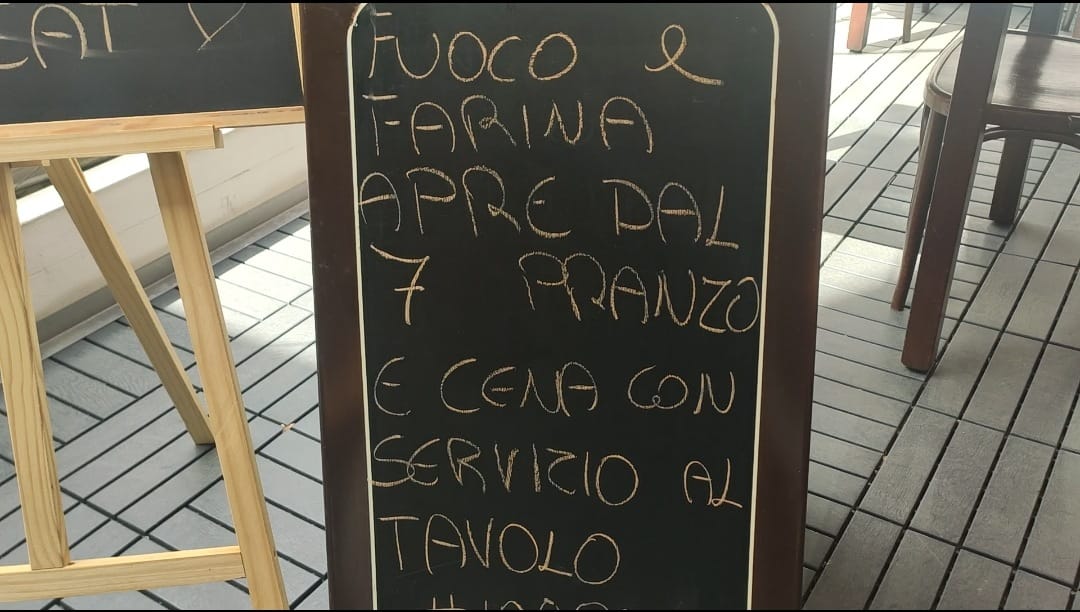 FUOCO e
FARINA
APRE DAL
7 PRANZO
E CENA CON
SERVIZIO AL
TAVOLO